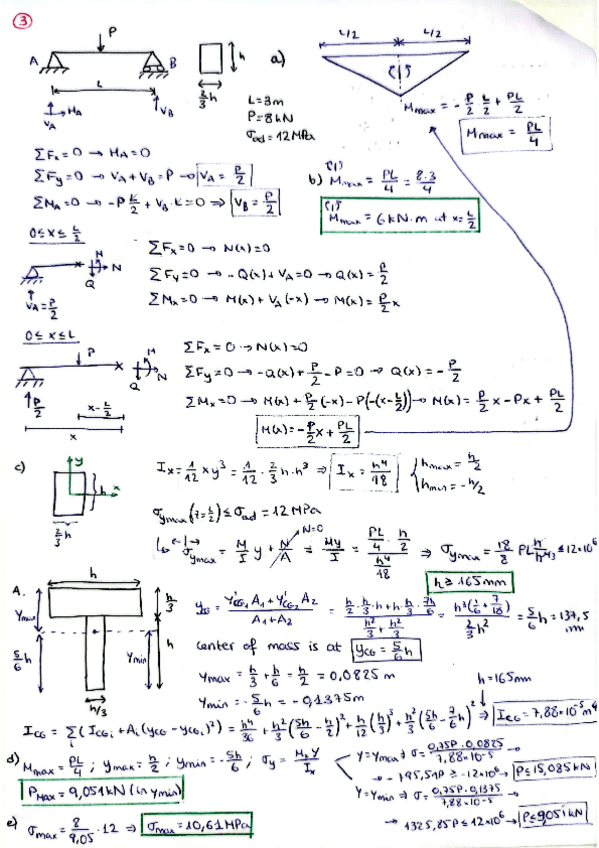 3
P
A
B
h
2/3 h
a)
L/2 L/2
(1)
L
H_A
V_A
V_B
L = 3m
P = 8kN
σ_ad = 12MPa
M_max = -P/2 L/2 + PL/2
M_max = PL/4
ΣF_x = 0 → H_A = 0
ΣF_y = 0 → V_A + V_B = P → V_A = P/2
ΣM_A = 0 → -P L/2 + V_B · L = 0 ⇒ V_B = P/2
b) M_max = PL/4 = 8·3/4
M_max = 6 kN·m at x = L/2
0 ≤ x ≤ L/2
M
N
Q
V_A = P/2
ΣF_x = 0 → N(x) = 0
ΣF_y = 0 → -Q(x) + V_A = 0 → Q(x) = P/2
ΣM_x = 0 → M(x) + V_A (-x) → M(x) = P/2 x
0 ≤ x ≤ L
P
M
N
Q
P/2
x - L/2
x
ΣF_x = 0 → N(x) = 0
ΣF_y = 0 → -Q(x) + P/2 - P = 0 → Q(x) = -P/2
ΣM_x = 0 → M(x) + P/2 (-x) - P(-(x - L/2)) → M(x) = P/2 x - Px + PL/2
M(x) = -P/2 x + PL/2
c)
y
x
h
2/3 h
I_x = 1/12 x y³ = 1/12 · 2/3 h · h³ ⇒ I_x = h⁴/18
h_max = h/2
h_min = -h/2
σ_ymax (y = h/2) ≤ σ_ad = 12 MPa
σ_ymax = M/I y + N/A = My/I = (PL/4 · h/2)/(h⁴/18) ⇒ σ_ymax = 18/8 PL h/h⁴ ≤ 12×10⁶
N=0
h ≥ 165mm
A.
h
h/3
y_max
5/6 h
y_min
h
h/3
y_G = (y'CG1 A1 + y'CG2 A2)/(A1 + A2) = (h/2 · h/3 · h + h · h/3 · 7h/6)/(h²/3 + h²/3) = h³(1/6 + 7/18)/(2/3 h²) = 5/6 h = 137,5 mm
center of mass is at y_CG = 5/6 h
y_max = h/3 + h/6 = h/2 = 0,0825 m
y_min = -5/6 h = -0,1375m
h = 165mm
I_CG = Σ(I_CGi + A_i (y_CG - y_CGi)²) = h⁴/36 + h²/3 (5h/6 - h/2)² + h/12 (h/3)³ + h²/3 (5h/6 - 7/6 h)² ⇒ I_CG = 7,88·10⁻⁵ m⁴
d) M_max = PL/4 ; y_max = h/2 ; y_min = -5h/6 ; σ_y = M_x y/I_x
y = y_max ⇒ σ = 0,75P · 0,0825/7,88·10⁻⁵ →
→ -785,59P ≥ -12×10⁶ → P ≤ 15,085 kN
P_max = 9,051 kN (in y_min)
y = y_min ⇒ σ = 0,75P · 0,1375/7,88·10⁻⁵ →
→ 1325,85P ≤ 12×10⁶ → P ≤ 9,051 kN
e) σ_max = 8/9,05 · 12 ⇒ σ_max = 10,61 MPa